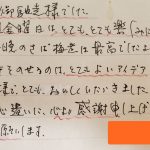 御馳走様でした。
金曜日は、とても、とても楽しみに
晩のさば梅煮は最高でしたよ
そのせるのは、とてもよいアイデア
様、とても、おいしくいただき
心遣いに、心より感謝申し上げ
願いします。